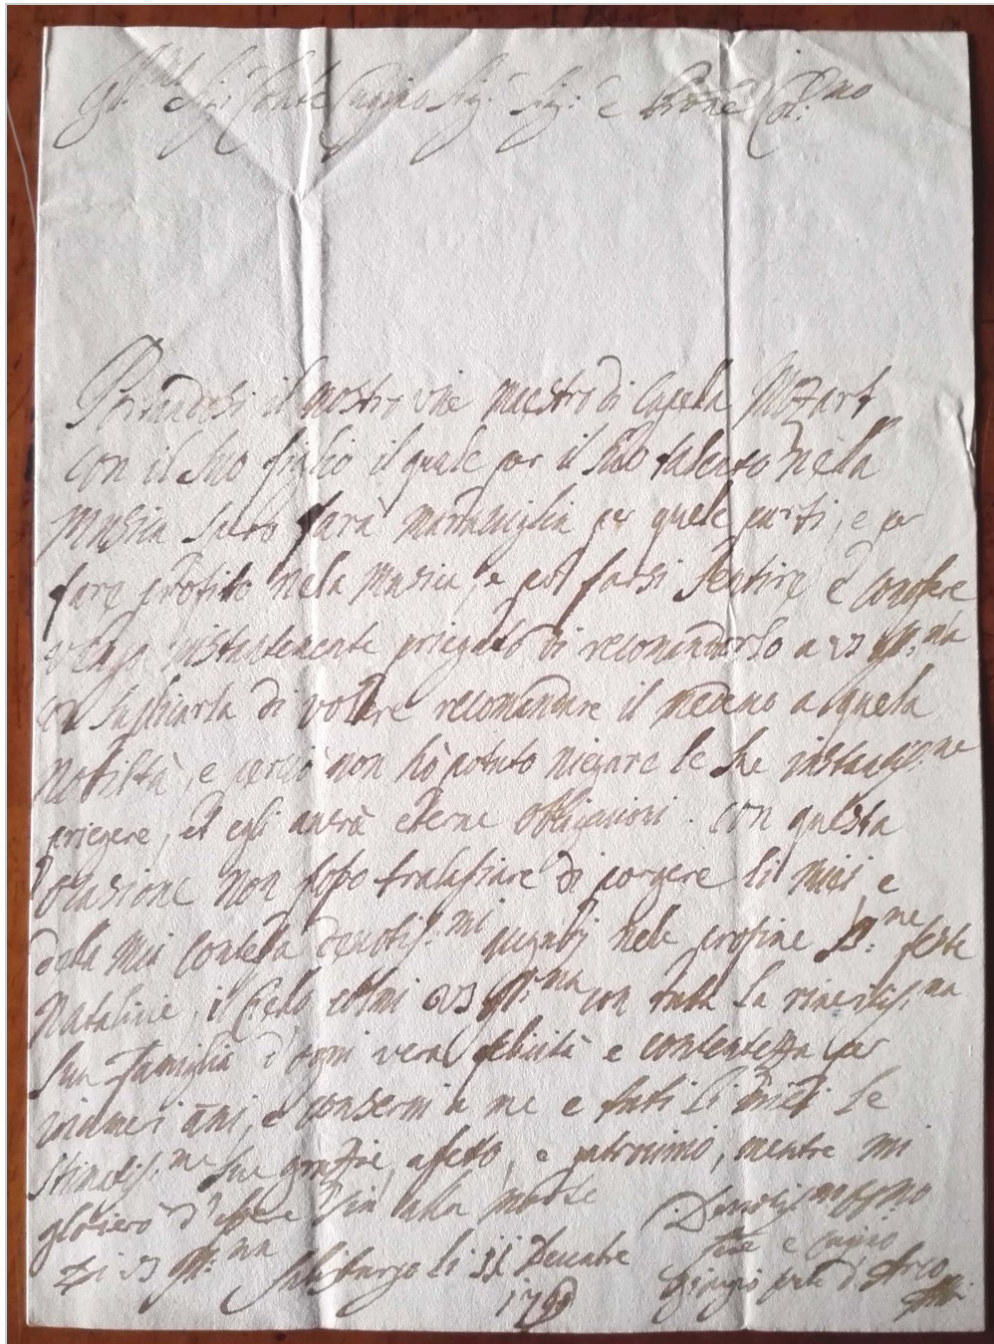 Ill:mo Sig: Conte Cugino Sig: Sig: e Prone Col:mo
Portandosi il nostro vice maestro di Capela Mozart
con il suo figlio il quale per il suo talento nela
Musica farà maraviglia per quele parti, e per
fare profito nela musica e per farsi sentire e conoscere
vengo instantemente priegato di recomandarlo a VS Ill:ma
con suplicarla di volere recomandare il medemo a quela
Nobiltà, e perciò non hò potuto niegare le sue
priegere, et egli averà eterne obligazioni. con questa
ocasione non posso tralasciare di porgere li miei, e
dela mia contessa devotiss:mi nele prosime S:me feste
Natalizie, il Cielo colmi VS Ill:ma con tuta la riveritiss:ma
sua famiglia d'ogni vera felicità e contentezza per
anni, e conservi a me e tuti li miei le
stimatiss:me sue grazie, afeto, e patrocinio, mentre mi
glorierò d'essere sin ala morte
Di VS Ill:ma Salisburgo li 11 Decembre
1769
Devotiss:mo
e cugino
Giorgio conte d'Arco